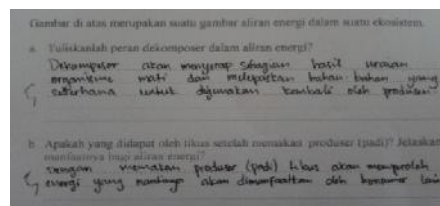 Gambar di atas merupakan suatu gambar aliran energi dalam suatu ekosistem.
a. Tuliskanlah peran dekomposer dalam aliran energi?
Dekomposer akan menyerap sebagian hasil uraian
organisme mati dan melepaskan bahan-bahan yang
sederhana untuk digunakan kembali oleh produsen
b. Apakah yang didapat oleh tikus setelah memakan produsen (padi)? Jelaskan
manfaatnya bagi aliran energi?
dengan memakan produsen (padi) tikus akan memperoleh
energi yang nantinya akan dimanfaatkan oleh konsumen lain